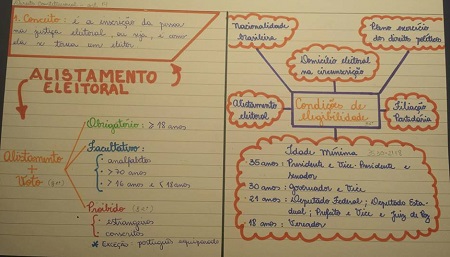 1. Conceito: é a inscrição da pessoa
na justiça eleitoral, ou seja, é como
ela se torna um eleitor
ALISTAMENTO
ELEITORAL
Alistamento
+
Voto
Obrigatório: ≥ 18 anos
Facultativo:
analfabetos
> 70 anos
> 16 anos e < 18 anos
Proibido
estrangeiros
conscritos
* Exceção: português equiparado
Nacionalidade
brasileira
Pleno exercício
dos direitos políticos
Domicílio eleitoral
na circunscrição
Alistamento
eleitoral
Condições de
elegibilidade
Filiação
Partidária
Idade Mínima
35 anos: Presidente e Vice-Presidente e
Senador
30 anos: Governador e Vice
21 anos: Deputado Federal; Deputado Esta-
dual; Prefeito e Vice e Juiz de Paz
18 anos: Vereador